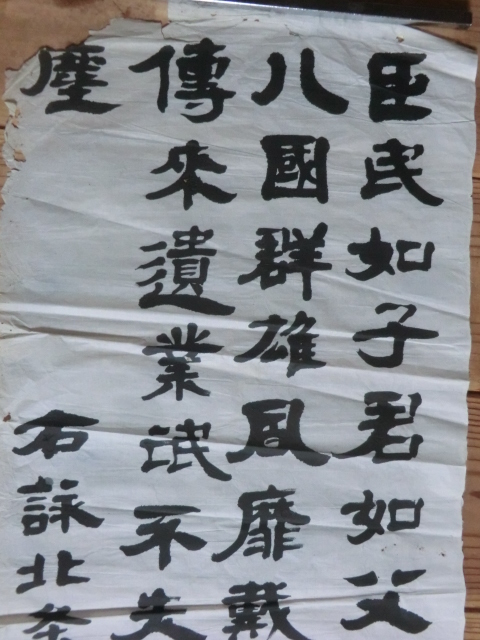 臣民如子君如父
八國群雄風靡戴
傳來遺業泯不失
塵
右詠北条